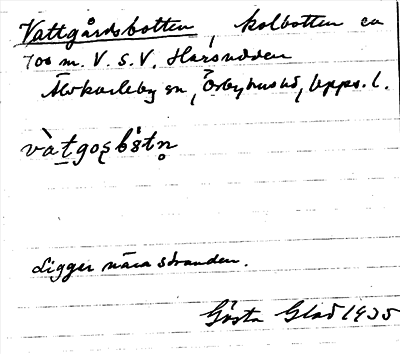 Vattgårdsbotten, kolbotten ca
700 m. V. S. V. Harsudden
Älvkarleby sn, Örbyhus hd, Upps. l.
vàt̲gos̨bǒtn̥
Ligger nära stranden.
Gösta Glad 1935